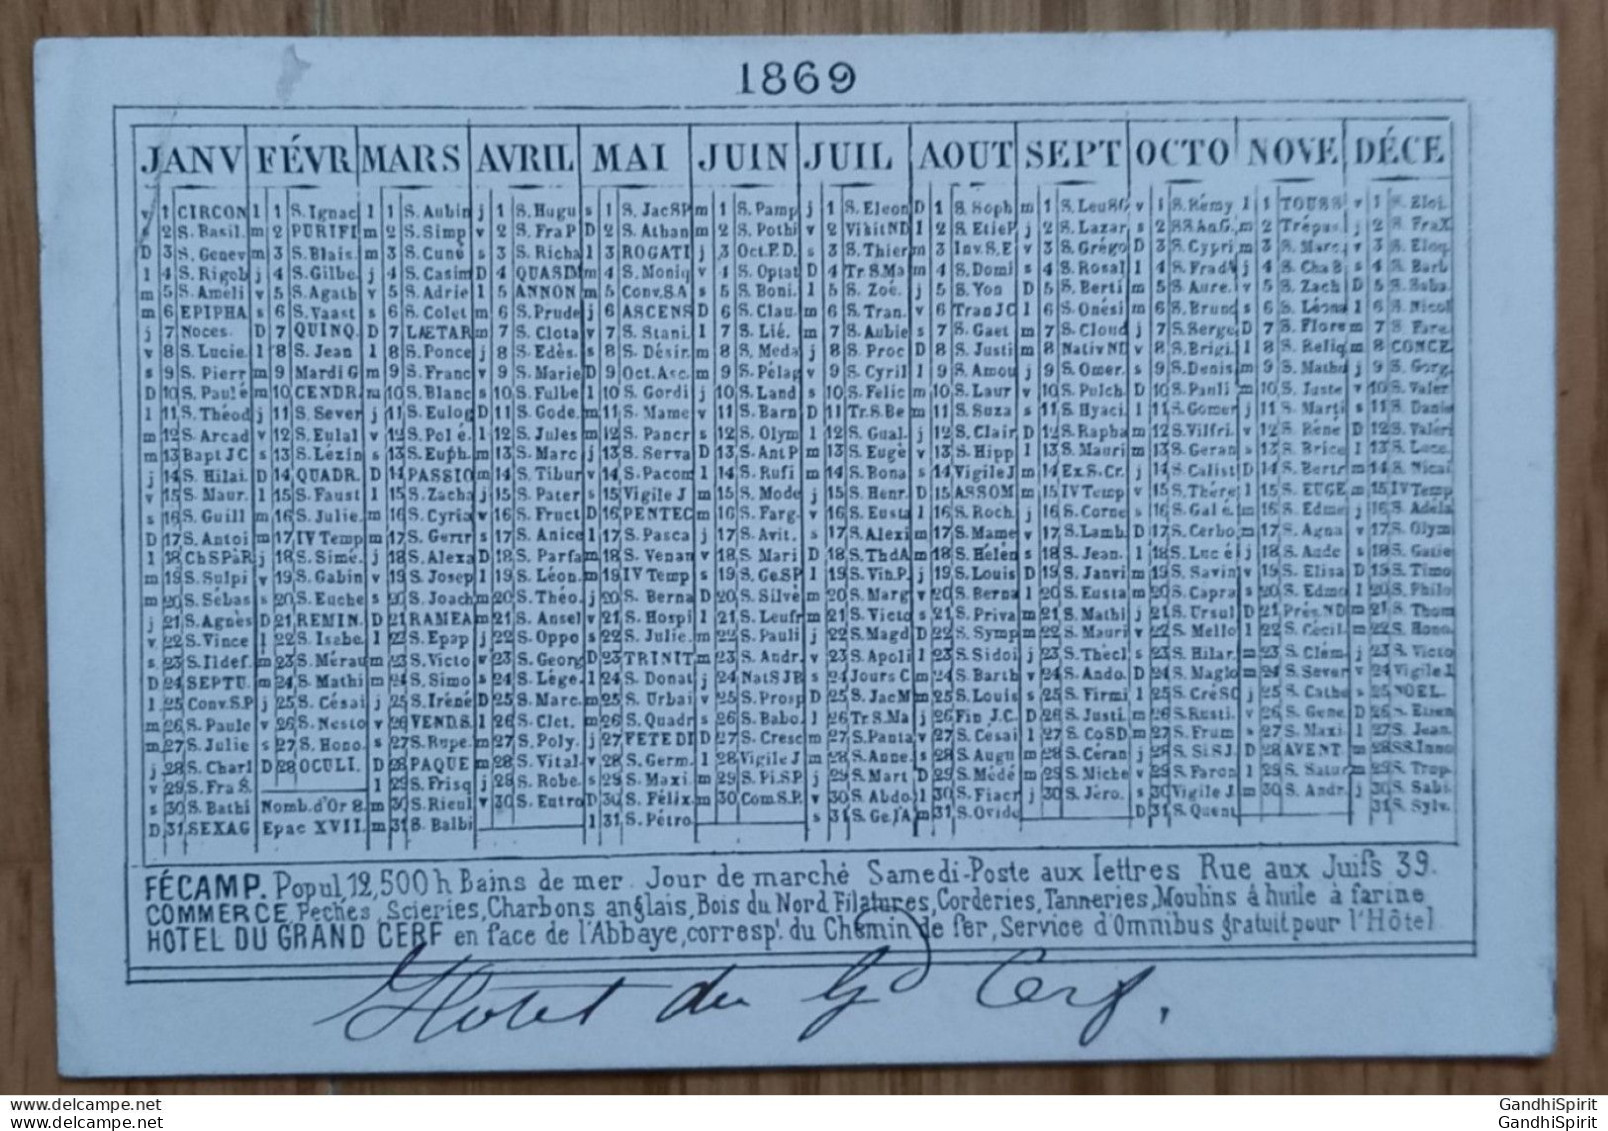 1869
JANV FÉVR MARS AVRIL MAI JUIN JUIL AOUT SEPT OCTO NOVE DÉCE
v 1 CIRCON l 1 S. Ignac l 1 S. Aubin j 1 S. Hugu s 1 S. JacSP m 1 S. Pamp j 1 S. Eleon D 1 S. Soph m 1 S. Leu v 1 S. Rémy l 1 TOUSS v 1 S. Eloi.
s 2 S. Basil. m 2 PURIFI m 2 S. Simp v 2 S. FraP D 2 S. Athan m 2 S. Pothi v 2 VisitND l 2 S. EtieP j 2 S. Lazar s 2 SS.AnG. m 2 Trépas s 2 S. FraX
D 3 S. Genev m 3 S. Blais. m 3 S. Cuné s 3 S. Richa l 3 ROGATI j 3 Oct.F.D. s 3 S. Thier m 3 Inv.S.E v 3 S. Grégo D 3 S. Cypri m 3 S. Marc D 3 S. Eloq
l 4 S. Rigob j 4 S. Gilbe j 4 S. Casim D 4 QUASIM m 4 S. Moniq v 4 S. Optat D 4 Tr.S.Ma m 4 S. Domi s 4 S. Rosal l 4 S. Frad'A j 4 S. ChaB s 4 S. Barb
m 5 S. Améli v 5 S. Agath v 5 S. Adrie l 5 ANNON m 5 Conv.SA s 5 S. Boni. l 5 S. Zoé. j 5 S. Yon D 5 S. Berti m 5 S. Aure. v 5 S. Zach D 5 S. Saba.
m 6 EPIPHA s 6 S. Vaast s 6 S. Colet m 6 S. Prude j 6 ASCENS D 6 S. Clau. m 6 S. Tran. v 6 TranJC l 6 S. Onési m 6 S. Bruno s 6 S. Léona l 6 S. Nicol
j 7 Noces. D 7 QUINQ. D 7 LÆTAR m 7 S. Clota v 7 S. Stani. l 7 S. Lié. m 7 S. Aubie s 7 S. Gaet m 7 S. Cloud j 7 S. Serge D 7 S. Flore m 7 S. Fare.
v 8 S. Lucie. l 8 S. Jean l 8 S. Ponce j 8 S. Edès. s 8 S. Désir. m 8 S. Meda j 8 S. Proc D 8 S. Justi m 8 NativND v 8 S. Brigi. l 8 S. Reliq m 8 CONCE
s 9 S. Pierr m 9 Mardi G m 9 S. Franc v 9 S. Marie D 9 Oct.Asc. m 9 S. Pélag v 9 S. Cyril l 9 S. Amou j 9 S. Omer. s 9 S. Denis m 9 S. Mathu j 9 S. Gorg.
D 10 S. Paulé m 10 CENDR. m 10 S. Blanc s 10 S. Fulbe l 10 S. Gordi j 10 S. Land s 10 S. Felic m 10 S. Laur v 10 S. Pulch D 10 S. Pauli m 10 S. Juste v 10 S. Valer
l 11 S. Théod j 11 S. Sever j 11 S. Eulog D 11 S. Gode. m 11 S. Mame v 11 S. Barn D 11 Tr.S.Be m 11 S. Suza s 11 S. Hyaci l 11 S. Gomer j 11 S. Marti s 11 S. Danie
m 12 S. Arcad v 12 S. Eulal v 12 S. Pol é. l 12 S. Jules m 12 S. Pancr s 12 S. Olym l 12 S. Gual. j 12 S. Clair D 12 S. Rapha m 12 S. Vilfri. v 12 S. Réne D 12 S. Valéri
m 13 Bapt JC s 13 S. Lézin s 13 S. Euph. m 13 S. Marc j 13 S. Serva D 13 S. AntP m 13 S. Eugè v 13 S. Hipp l 13 S. Mauri m 13 S. Geran s 13 S. Brice l 13 S. Luce.
j 14 S. Hilai. D 14 QUADR. D 14 PASSIO m 14 S. Tibur v 14 S. Pacom l 14 S. Rufi m 14 S. Bona s 14 Vigile J m 14 Ex.S.Cr. j 14 S. Calist D 14 S. Bertr m 14 S. Nicai
v 15 S. Maur. l 15 S. Faust l 15 S. Zacha j 15 S. Pater s 15 Vigile J m 15 S. Mode j 15 S. Henr. D 15 ASSOM m 15 IV Temp v 15 S. Thére l 15 S. EUGE m 15 IV Temp
s 16 S. Guill m 16 S. Julie. m 16 S. Cyria v 16 S. Fruct D 16 PENTEC m 16 S. Farg. v 16 S. Eusta l 16 S. Roch. j 16 S. Corne s 16 S. Galé m 16 S. Edme j 16 S. Adéla
D 17 S. Antoi m 17 IV Temp m 17 S. Gertr s 17 S. Anice l 17 S. Pasca j 17 S. Avit. s 17 S. Alexi m 17 S. Mame v 17 S. Lamb. D 17 S. Cerbo m 17 S. Agna v 17 S. Olym
l 18 ChSPàR j 18 S. Simé. j 18 S. Alexa D 18 S. Parfa m 18 S. Venan v 18 S. Mari D 18 S. ThdA m 18 S. Helén s 18 S. Jean. l 18 S. Luc é j 18 S. Aude s 18 S. Gatie
m 19 S. Sulpi v 19 S. Gabin v 19 S. Josep l 19 S. Léon. m 19 IV Temp s 19 S. Ge.SP l 19 S. Vin.P. j 19 S. Louis D 19 S. Janvi m 19 S. Savin v 19 S. Elisa D 19 S. Timo
m 20 S. Sébas s 20 S. Euche s 20 S. Joach m 20 S. Théo. j 20 S. Berna D 20 S. Silvè m 20 S. Marg v 20 S. Berna l 20 S. Eusta m 20 S. Capra s 20 S. Edmo l 20 S. Philo
j 21 S. Agnès D 21 REMIN. D 21 RAMEA m 21 S. Ansel v 21 S. Hospi l 21 S. Leufr m 21 S. Victo s 21 S. Priva m 21 S. Mathi j 21 S. Ursul D 21 Prés.ND m 21 S. Thom
v 22 S. Vince l 22 S. Isabe. l 22 S. Epap j 22 S. Oppo s 22 S. Julie. m 22 S. Pauli j 22 S. Magd D 22 S. Symp m 22 S. Mauri v 22 S. Mello l 22 S. Cécil. m 22 S. Hono.
s 23 S. Ildef. m 23 S. Mérau m 23 S. Victo v 23 S. Georg D 23 TRINIT m 23 S. Andr. v 23 S. Apoli l 23 S. Sidoi j 23 S. Thècl s 23 S. Hilar. m 23 S. Clém. j 23 S. Victo
D 24 SEPTU. m 24 S. Mathi m 24 S. Simo s 24 S. Lége. l 24 S. Donat j 24 NatSJB s 24 Jours C m 24 S. Barth v 24 S. Ando. D 24 S. Maglo m 24 S. Sever v 24 Vigile J
l 25 Conv.S.P j 25 S. Césai j 25 S. Iréné D 25 S. Marc. m 25 S. Urbai v 25 S. Prosp D 25 S. JacM m 25 S. Louis s 25 S. Firmi l 25 S. CréSC j 25 S. Cathe s 25 NOEL.
m 26 S. Paule v 26 S. Nesto v 26 VEND.S. l 26 S. Clet. m 26 S. Quadr s 26 S. Babo. l 26 Tr.S.Ma j 26 Fin J.C. D 26 S. Justi. m 26 S. Rusti. v 26 S. Gene. D 26 S. Etien
m 27 S. Julie s 27 S. Hono. s 27 S. Rupe. m 27 S. Poly. j 27 FETEDI D 27 S. Cresc m 27 S. Panta v 27 S. Césai l 27 S. CoSD m 27 S. Frum s 27 S. Maxi. l 27 S. Jean.
j 28 S. Charl D 28 OCULI. D 28 PAQUE m 28 S. Vital v 28 S. Germ. l 28 Vigile J m 28 S. Anne. s 28 S. Augu m 28 S. Céran j 28 S. SiSJ. D 28 AVENT m 28 SS.Inno
v 29 S. Fra S. l 29 S. Frisq j 29 S. Robe. s 29 S. Maxi. m 29 S. Pi.SP j 29 S. Mart D 29 S. Médé m 29 S. Miche v 29 S. Faron l 29 S. Satur m 29 S. Trop.
s 30 S. Bathi Nomb. d'Or 8. m 30 S. Rieul v 30 S. Eutro D 30 S. Félix m 30 Com.S.P. v 30 S. Abdo. l 30 S. Fiacr j 30 S. Jéro. s 30 Vigile J m 30 S. Andr. j 30 S. Sabi.
D 31 SEXAG Epac XVII. m 31 S. Balbi l 31 S. Pétro s 31 S. Ge.l'A m 31 S. Ovide D 31 S. Quent v 31 S. Sylv.
FÉCAMP. Popul. 12,500 h Bains de mer. Jour de marché Samedi-Poste aux lettres Rue aux Juifs 39.
COMMERCE Pêches, Scieries, Charbons anglais, Bois du Nord Filatures, Corderies, Tanneries, Moulins à huile à farine
HOTEL DU GRAND CERF en face de l'Abbaye, corresp! du Chemin de fer, Service d'Omnibus gratuit pour l'Hôtel
Hotel du Gd Cerf.
www.delcampe.net
www.delcampe.net
GandhiSpirit
GandhiSpirit